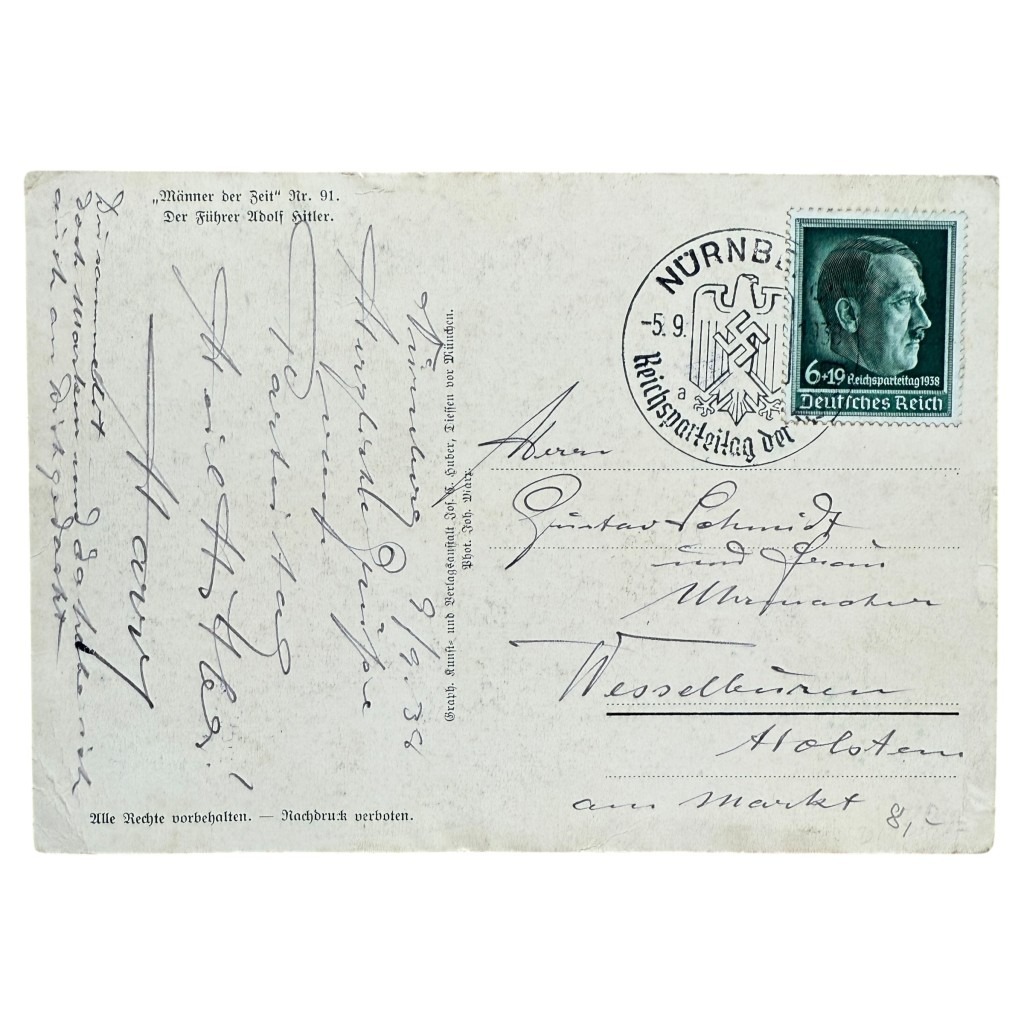 „Männer der Zeit“ Nr. 91.
Der Führer Adolf Hitler.
Nürnberg 9/9.38
Herzliche Grüße
zum
Parteitag
Heil Hitler!
doch Marken und
auch an
Graph. Kunst- und Verlagsanstalt Jos. C. Huber, Diessen vor München.
Phot. Joh. Marx.
Alle Rechte vorbehalten. — Nachdruck verboten.
NÜRNBE
-5.9.
a
Reichsparteitag der
6+19 Reichsparteitag 1938
Deutsches Reich
Herrn
Gustav Schmidt
und Frau
Uhrmacher
Wesselburen
Holstein
am Markt
8,-